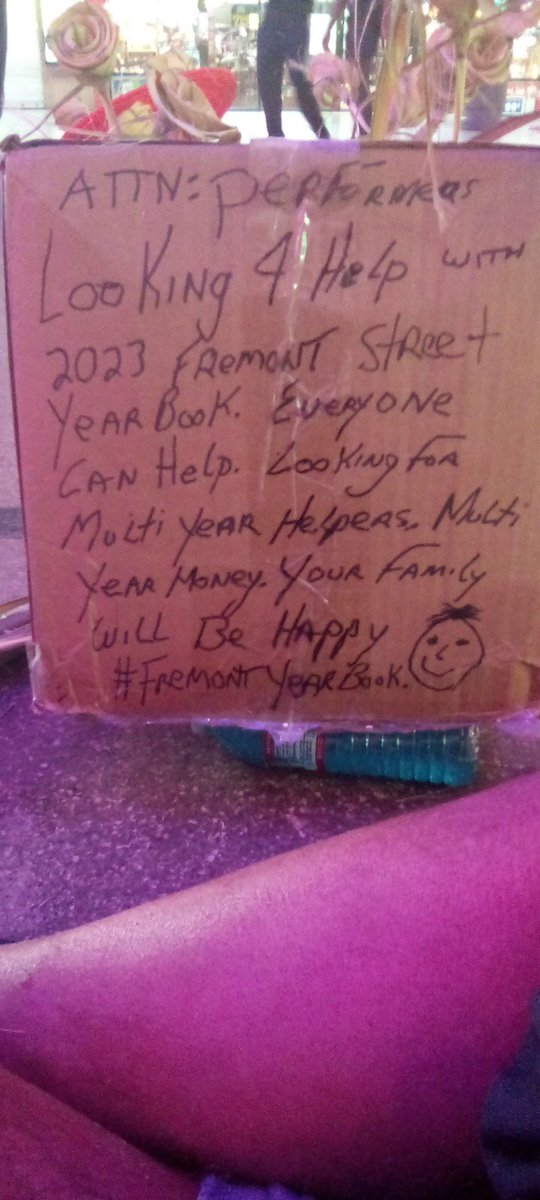 ATTN: PERFORMERS
LOOKING 4 HELP WITH
2023 FREMONT STREET
YEAR BOOK. EVERYONE
CAN HELP. LOOKING FOR
MULTI YEAR HELPERS. MULTI
YEAR MONEY. YOUR FAMILY
WILL BE HAPPY
#FREMONTYEARBOOK.